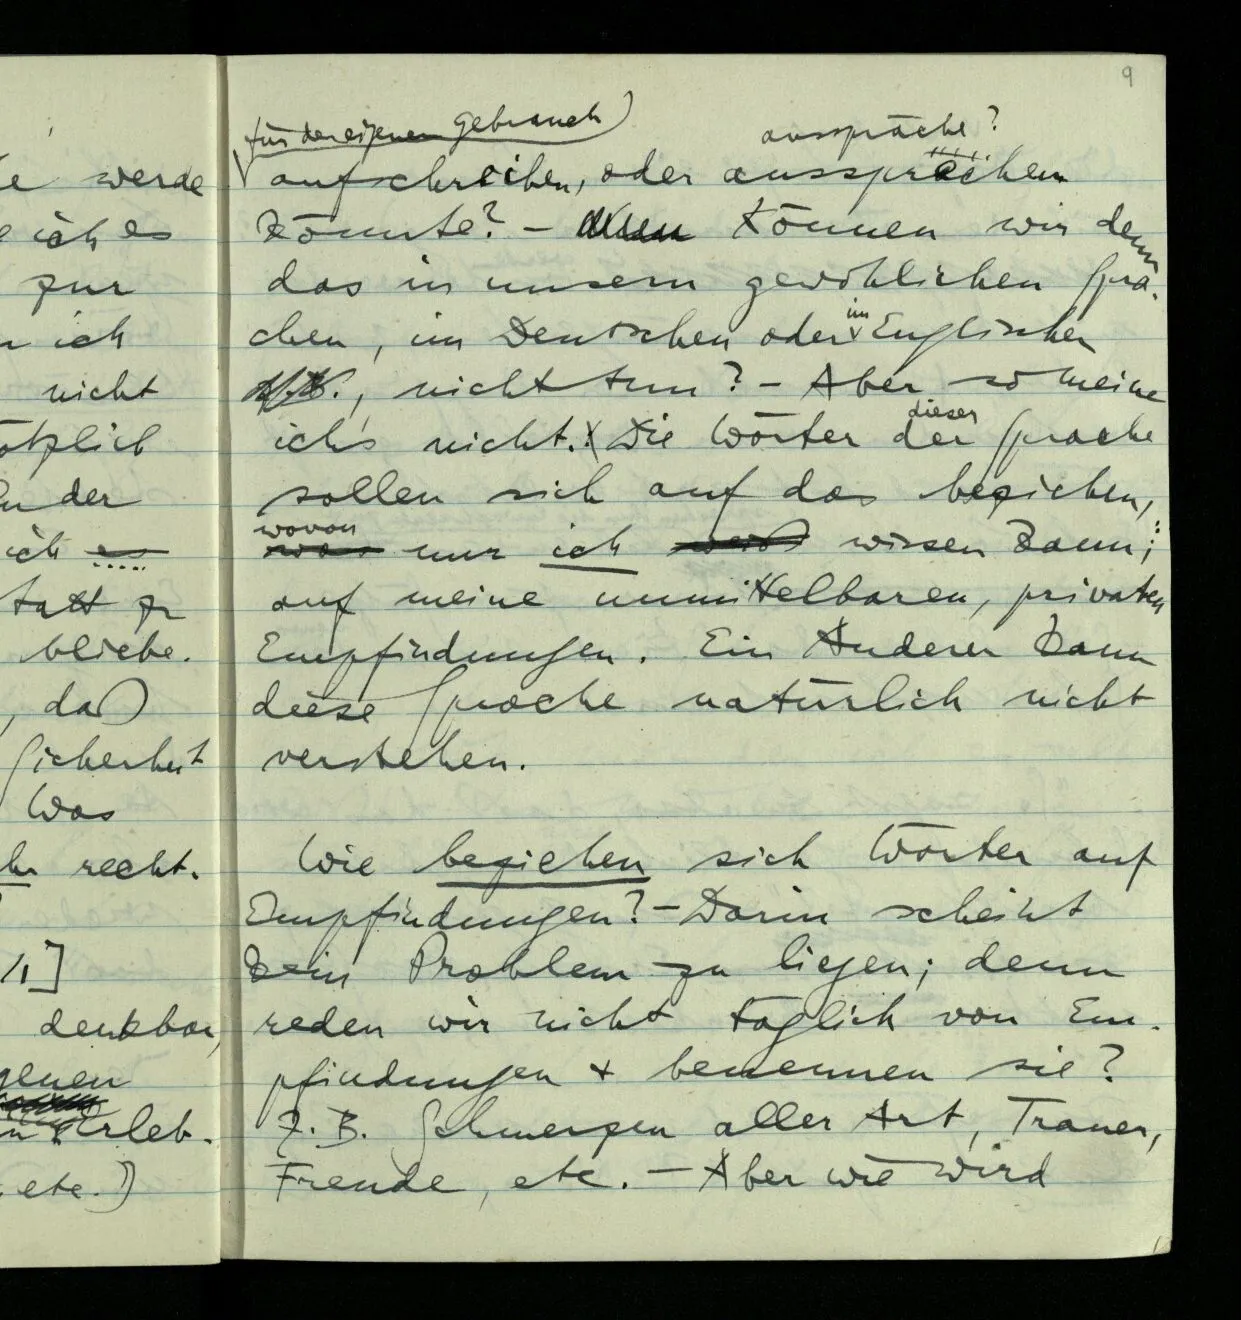 9
für den eigenen Gebrauch
ausspräche?
aufschreiben, oder aussprechen
könnte? – können wir denn
das in unsern gewöhlichen Spra-
chen, im Deutschen oder im Englischen
, nicht tun? – Aber so meine
ich's nicht. Die Wörter der dieser Sprache
sollen sich auf das beziehen,
wovon
was nur ich weiß wissen kann;
auf meine unmittelbaren, privaten
Empfindungen. Ein Anderer kann
diese Sprache natürlich nicht
verstehen.
Wie beziehen sich Wörter auf
Empfindungen? – Darin scheint
kein Problem zu liegen; denn
reden wir nicht täglich von Em-
pfindungen + benennen sie?
Z.B. Schmerzen aller Art, Trauer,
Freude, etc. – Aber wie wird
e werde
ich es
zur
ich
nicht
ötzlich
der
ich es
tatt zu
bliebe.
, daß
Sicherheit
Was
recht.
/1]
denkbar,
genen
Erleb-
etc.)